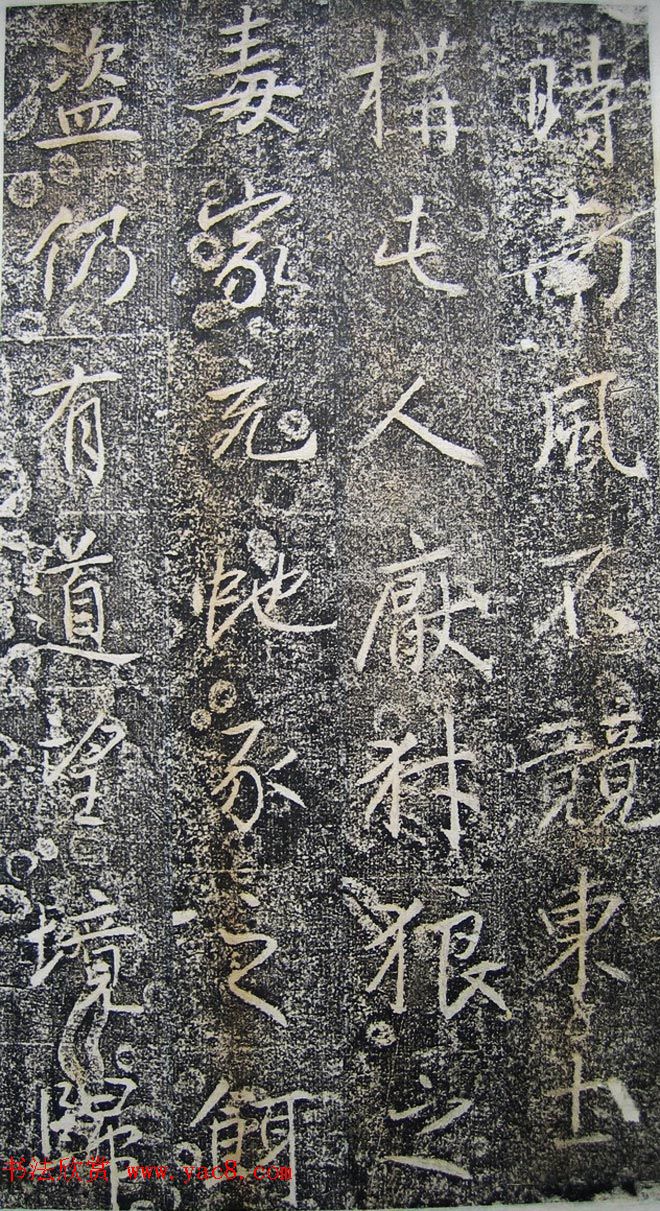 時南風不競東土
構屯人厭犲狼之
毒家充虵豕之餌
盜仍有道望境歸
书法欣赏 www.yac8.com